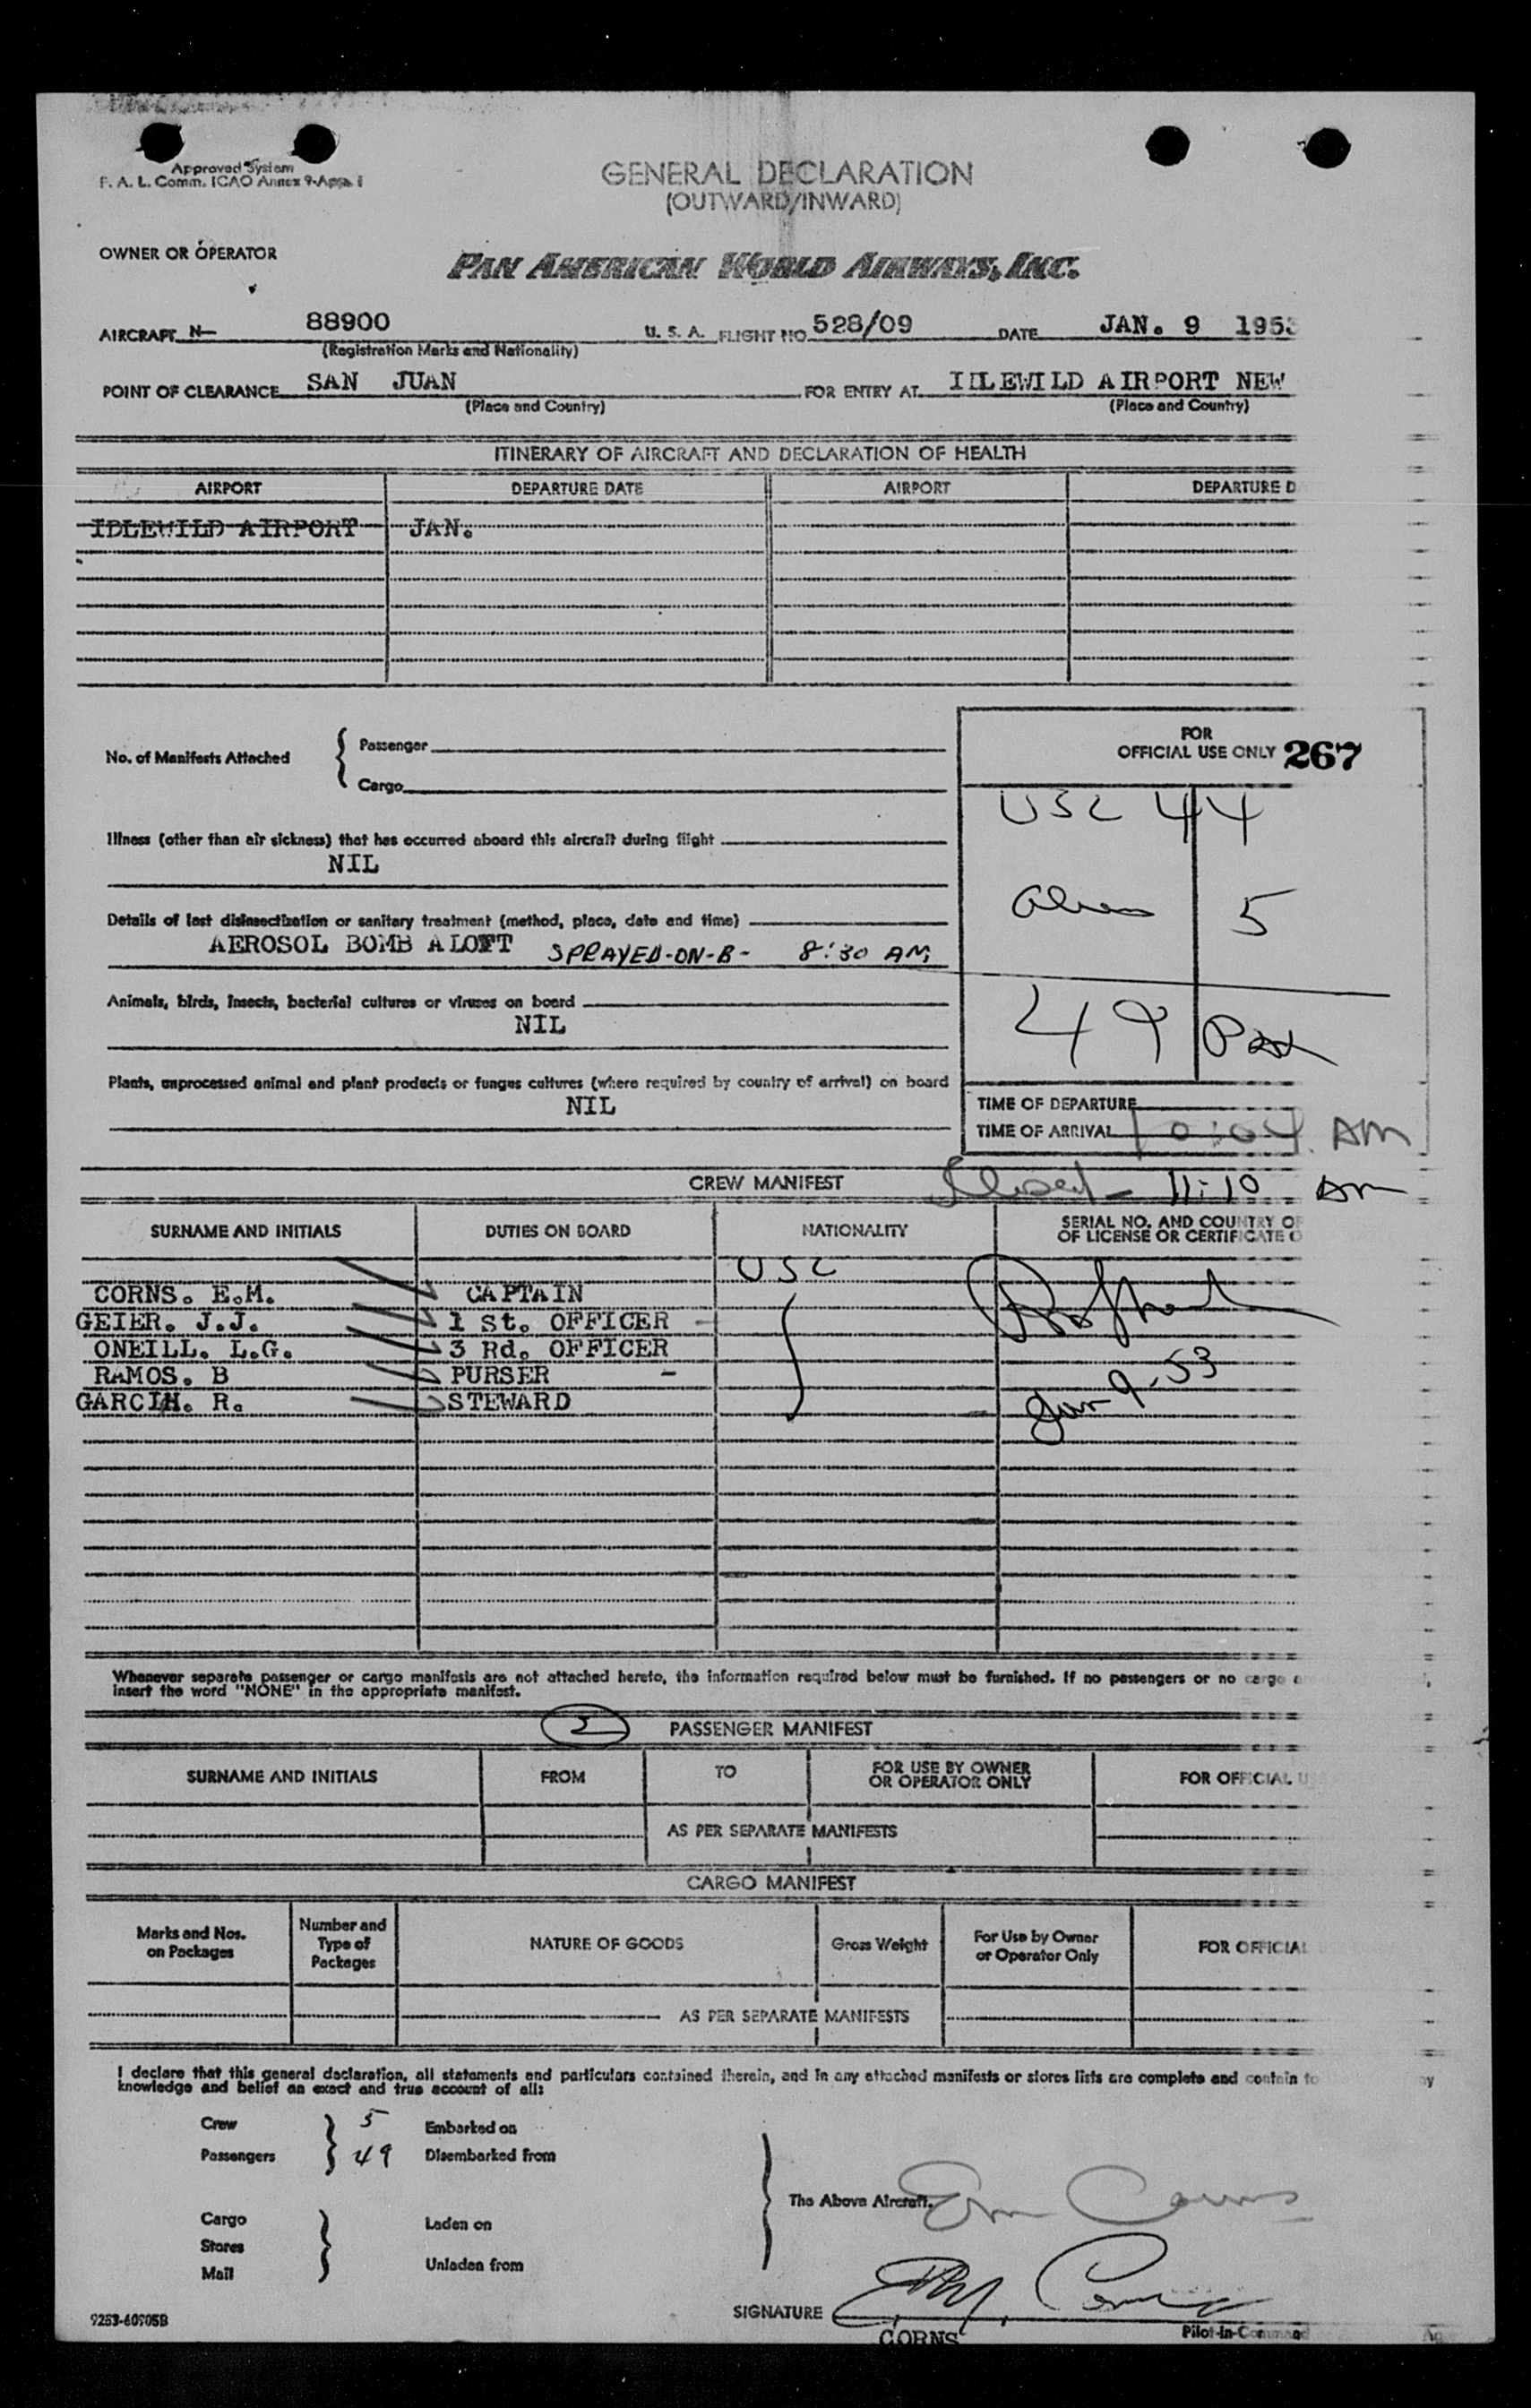 Approved System
F. A. L. Comm. ICAO Annex 9-App. 1
GENERAL DECLARATION
(OUTWARD/INWARD)
OWNER OR OPERATOR
PAN AMERICAN WORLD AIRWAYS, INC.
AIRCRAFT N- 88900 U. S. A. FLIGHT NO. 528/09 DATE JAN. 9 1953
(Registration Marks and Nationality)
POINT OF CLEARANCE SAN JUAN FOR ENTRY AT IDLEWILD AIRPORT NEW
(Place and Country) (Place and Country)
ITINERARY OF AIRCRAFT AND DECLARATION OF HEALTH
AIRPORT DEPARTURE DATE AIRPORT DEPARTURE D
IDLEWILD AIRPORT JAN.
No. of Manifests Attached { Passenger
Cargo
FOR
OFFICIAL USE ONLY 267
USC 44
Illness (other than air sickness) that has occurred aboard this aircraft during flight
NIL
Aliens 5
Details of last disinsectization or sanitary treatment (method, place, date and time)
AEROSOL BOMB ALOFT SPRAYED-ON-B- 8:30 AM
Animals, birds, insects, bacterial cultures or viruses on board
NIL
49 Pax
Plants, unprocessed animal and plant products or fungus cultures (where required by country of arrival) on board
NIL
TIME OF DEPARTURE
TIME OF ARRIVAL 10:04 AM
CREW MANIFEST
Closed - 11:10 AM
SURNAME AND INITIALS DUTIES ON BOARD NATIONALITY SERIAL NO. AND COUNTRY OF
OF LICENSE OR CERTIFICATE O
USC
CORNS. E.M. CAPTAIN
GEIER. J.J. 1 St. OFFICER
ONEILL. L.G. 3 Rd. OFFICER
RAMOS. B PURSER
GARCIA. R. STEWARD
Jan 9-53
Whenever separate passenger or cargo manifests are not attached hereto, the information required below must be furnished. If no passengers or no cargo
insert the word "NONE" in the appropriate manifest.
2 PASSENGER MANIFEST
SURNAME AND INITIALS FROM TO FOR USE BY OWNER
OR OPERATOR ONLY FOR OFFICIAL U
AS PER SEPARATE MANIFESTS
CARGO MANIFEST
Marks and Nos.
on Packages Number and
Type of
Packages NATURE OF GOODS Gross Weight For Use by Owner
or Operator Only FOR OFFICIAL
AS PER SEPARATE MANIFESTS
I declare that this general declaration, all statements and particulars contained therein, and in any attached manifests or stores lists are complete and contain to
knowledge and belief an exact and true account of all:
Crew 5 Embarked on
Passengers 49 Disembarked from
The Above Aircraft. Em Corns
Cargo Laden on
Stores
Mail Unladen from
SIGNATURE E.M. Corns
CORNS Pilot-in-Command
9253-60905B